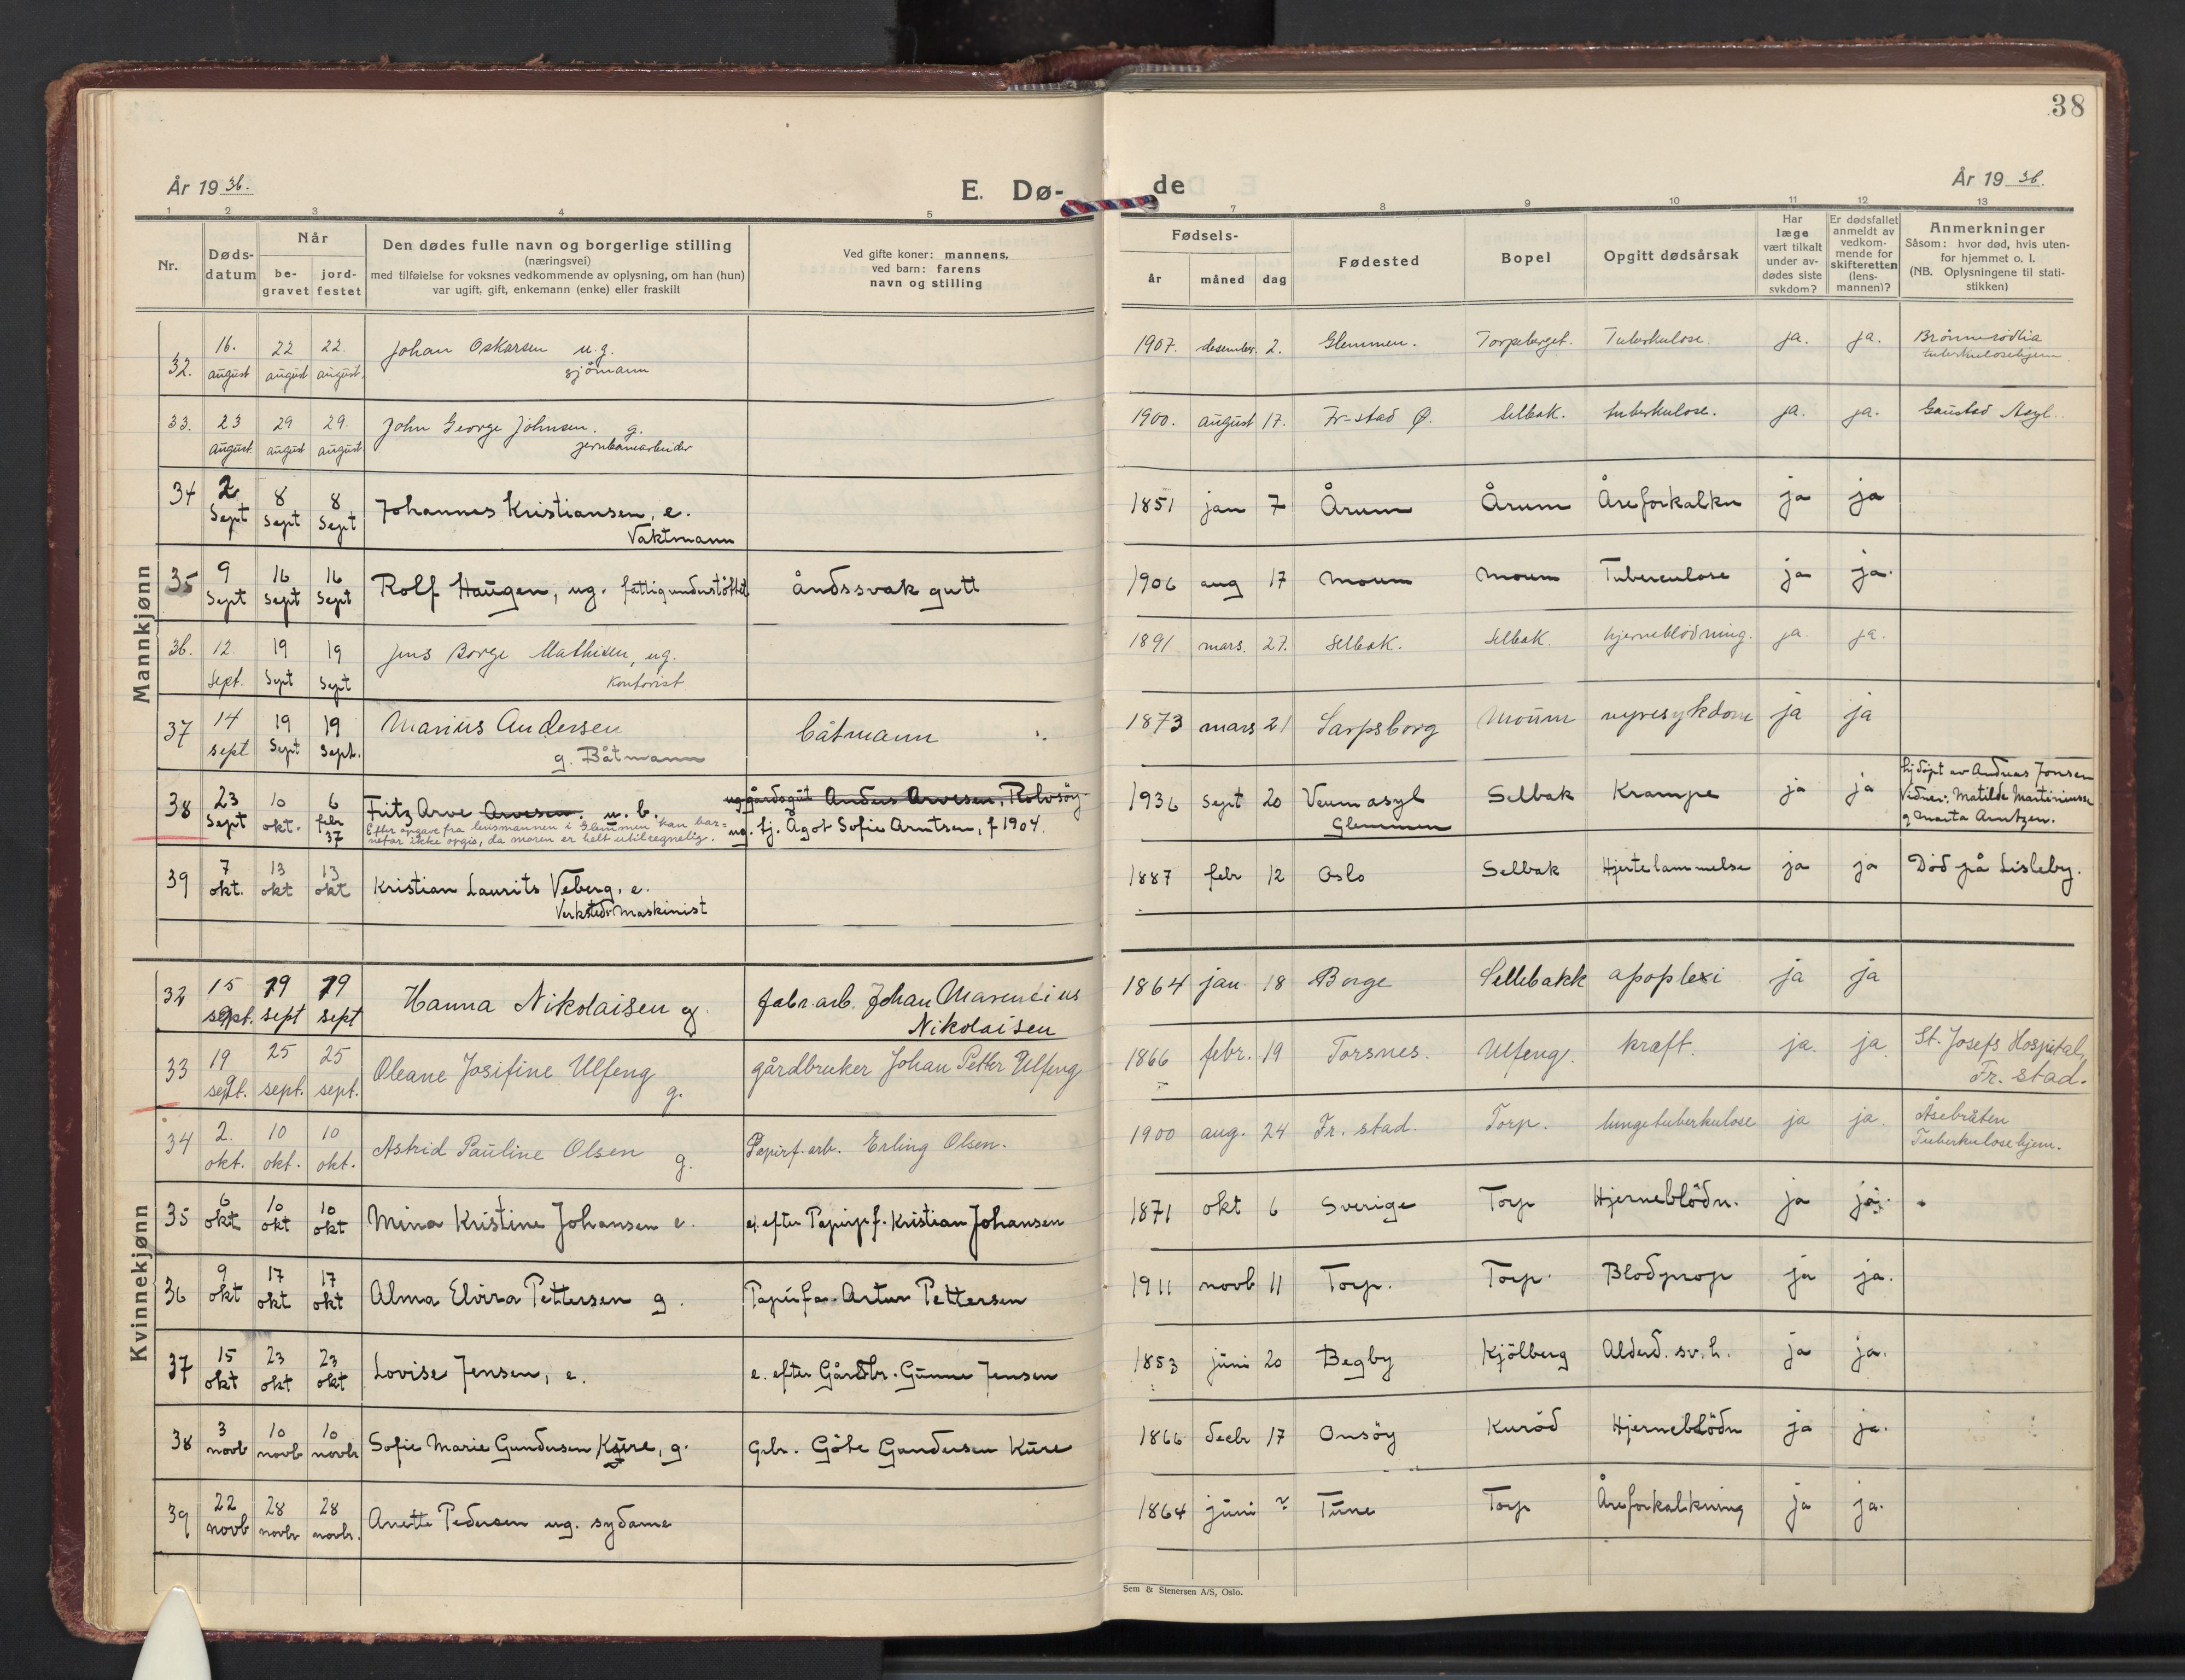 38
År 1936.
E. Dø-
de
År 1936.
1 2 3 4 5
7 8 9 10 11 12 13
Nr.
Døds-
datum
Når
be-
gravet
jord-
festet
Den dødes fulle navn og borgerlige stilling
(næringsvei)
med tilføielse for voksnes vedkommende av oplysning, om han (hun)
var ugift, gift, enkemann (enke) eller fraskilt
Ved gifte koner: mannens,
ved barn: farens
navn og stilling
Fødsels-
år måned dag
Fødested
Bopel
Opgitt dødsårsak
Har
læge
vært tilkalt
under av-
dødes siste
sykdom?
Er dødsfallet
anmeldt av
vedkom-
mende for
skifteretten
(lens-
mannen)?
Anmerkninger
Såsom: hvor død, hvis uten-
for hjemmet o. l.
(NB. Oplysningene til stati-
stikken)
Mannkjønn
32. 16. august 22 august 22. august. Johan Oskarsen u.g.
sjømann
1907. desember. 2. Glemmen. Torpeberget. Tuberkulose. ja. ja. Brønnerødlia
tuberkulosehjem.
33. 23 August. 29 august 29. august John George Johnsen. g.
jernbanearbeider
1900. august 17. Fr-stad Ø. Selbak. tuberkulose. ja. ja. Gaustad Asyl.
34 2 Sept 8 Sept 8 Sept Johannes Kristiansen, e.
Vaktmann
1851 jan 7 Årum Årum Åreforkalkn ja ja
35 9 Sept 16 Sept 16 Sept Rolf Haugen, ug. fattigunderstöttet åndssvak gutt
1906 aug 17 Moum Moum Tuberculose ja ja.
36. 12. Sept. 19 Sept 19 Sept Jens Borge Mathisen, ug.
Kontorist
1891 mars. 27. Selbak. Selbak. hjerneblödning. ja. ja.
37 14 sept 19 Sept 19 Sept. Marius Andersen
g. Båtmann
båtmann
1873 mars 21 Sarpsborg Moum nyresykdom ja ja
38 23 Sept 10 okt. 6 febr 37 Fritz Arve Arvesen. u. b.
Efter opgave fra lensmannen i Glemmen kan bar-
nefar ikke opgis, da moren er helt utilregnelig.
ug gårdsgut Anders Arvesen, Rolvsöy
ug. tj. Ågot Sofie Arntsen, f 1904.
1936 Sept 20 Veum asyl
Glemmen
Selbak Krampe ja ja
hj döpt av Andreas Jonsen
Vidner: Matilde Martiniussen
g Marta Arntzen.
39 7 okt. 13 okt 13 okt Kristian Laurits Veberg, e.
Verksteds-maskinist
1887 febr 12 Oslo Selbak Hjertelammelse ja ja Död på Lisleby.
Kvinnekjønn
32 15 sept. 19 sept 19 sept Hanna Nikolaisen g. fabr.arb. Johan Marentius
Nikolaisen
1864 jan 18 Borge Sellebakk apoplexi ja ja
33 19 sept. 25 sept. 25 sept. Oleane Josifine Ulfeng
g.
gårdbruker Johan Petter Ulfeng
1866 febr. 19 Torsnes. Ulfeng. kræft. ja. ja. St. Josefs Hospital,
Fr. stad.
34 2. okt. 10 okt. 10 okt. Astrid Pauline Olsen g. Papirf. arb. Erling Olsen.
1900 aug. 24 Fr. stad. Torp. lungetuberkulose ja ja. Åsebråten
Tuberkulosehjem.
35 6 okt 10 okt 10 okt Mina Kristine Johansen e. e. efter Papirpf. Kristian Johansen
1871 okt 6 Sverige Torp Hjerneblödn. ja ja.
36 9 okt 17 okt 17 okt Alma Elvira Pettersen g. Papirfa. Artur Pettersen
1911 novb 11 Torp. Torp. Blodprop ja ja.
37 15 okt 23 okt 23 okt Lovise Jensen, e. e. efter Gårdbr. Gunne Jensen
1853 juni 20 Begby Kjölberg Alderd. sv. h. ja ja.
38 3 novb 10 novb 10 novb Sofie Marie Gundersen Kure, g. Grbr. Göte Gundersen Kure
1866 decbr 17 Onsöy Kuröd Hjerneblödn ja ja.
39 22 novb 28 novbr 28 novbr. Anette Pedersen ug. sydame
1864 juni ? Tune Torp Åreforkalkning ja ja.
Sem & Stenersen A/S, Oslo.